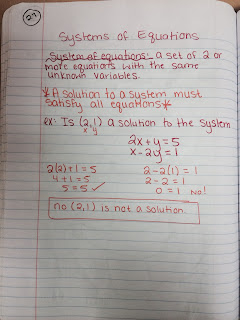 27
Systems of Equations
System of equations: a set of 2 or
more equations with the same
unknown variables.
*A solution to a system must
satisfy all equations*
ex: Is (2,1) a solution to the system
x y
2x+y=5
x-2y=1
2(2)+1=5 2-2(1)=1
4+1=5 2-2=1
5=5 ✓ 0=1 No!
no (2,1) is not a solution.